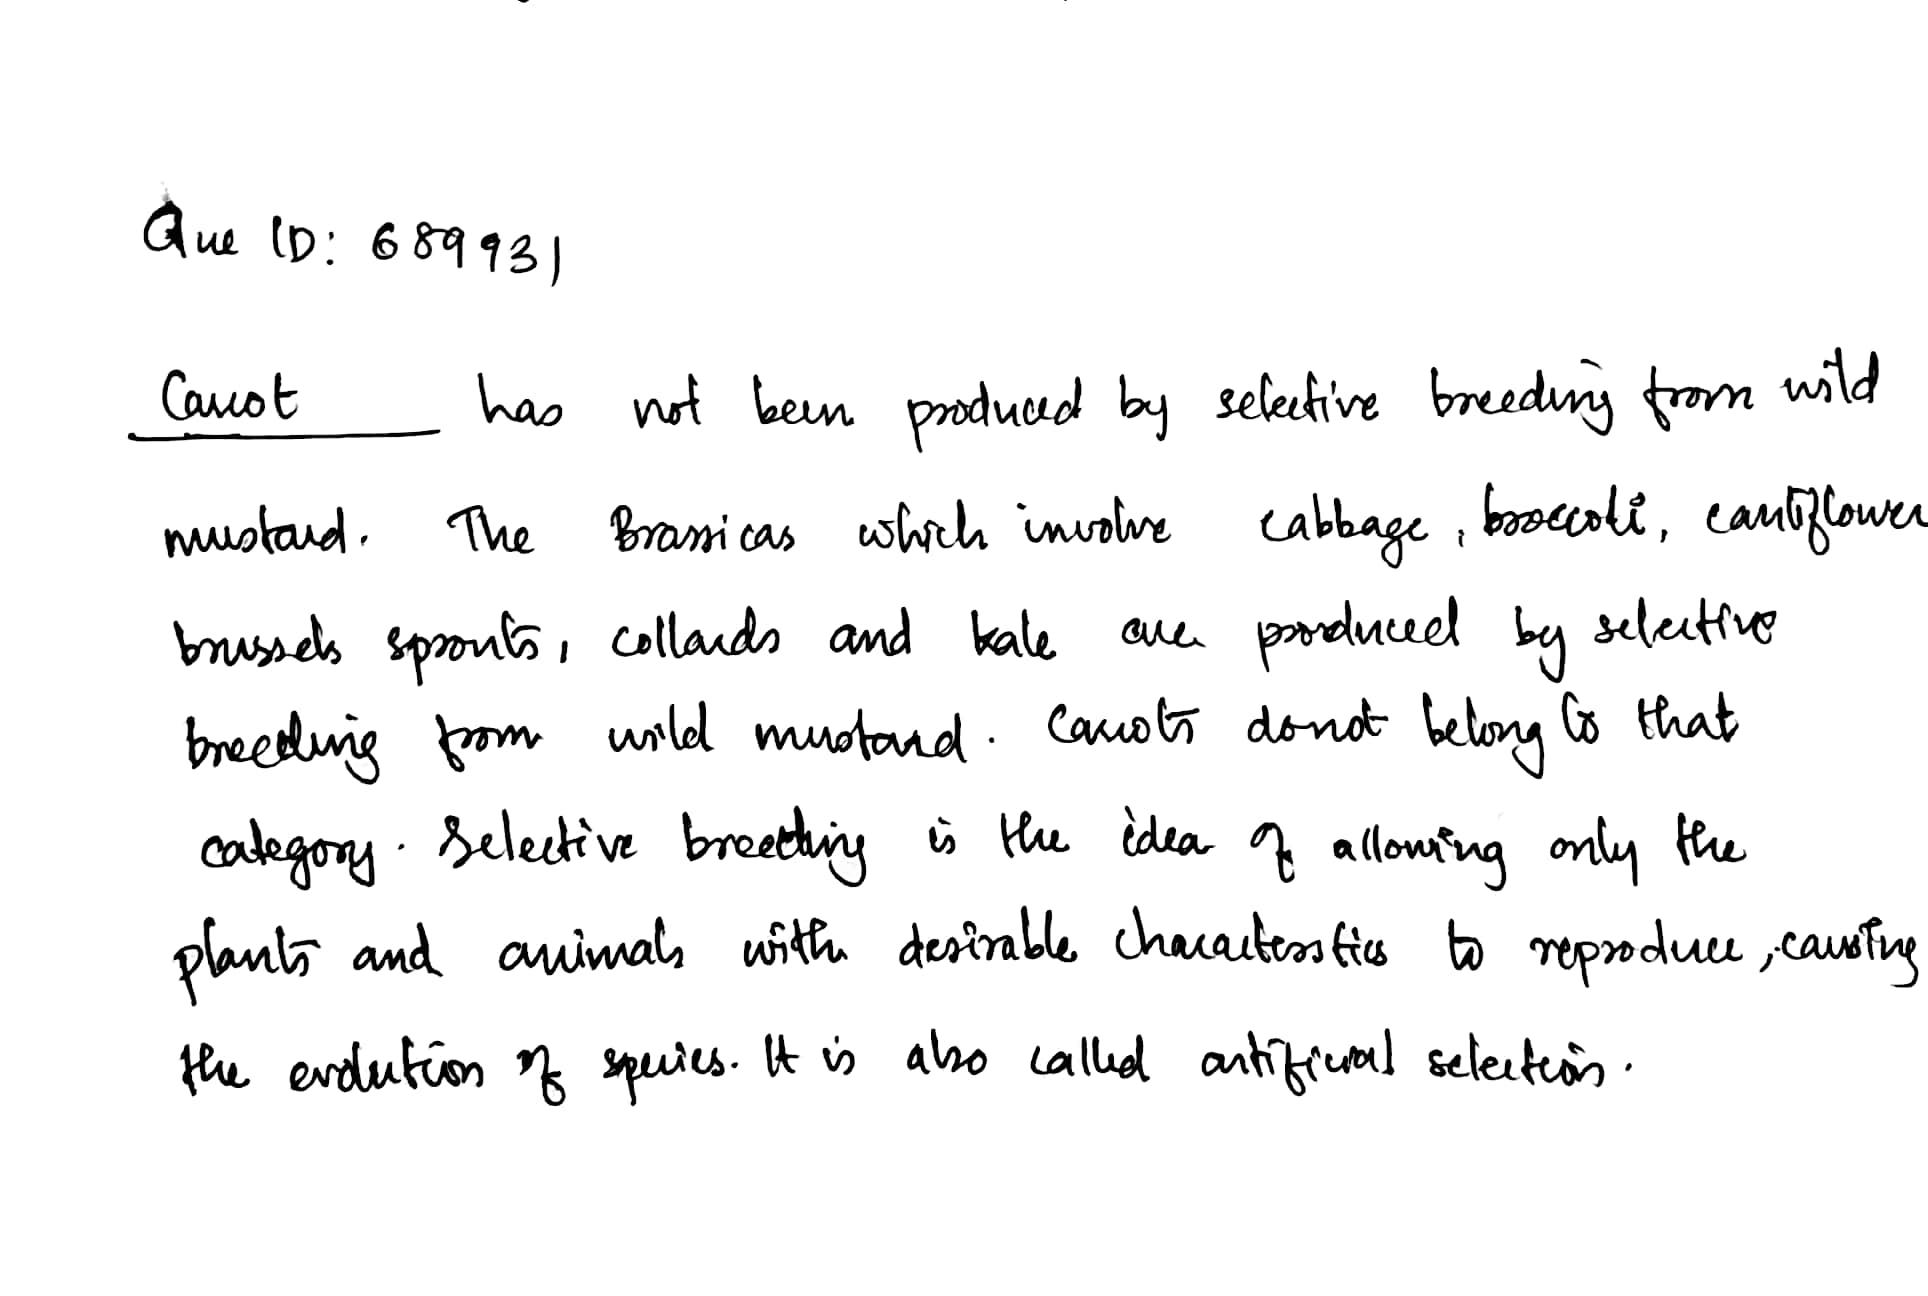 Que ID: 689931
Carrot has not been produced by selective breeding from wild
mustard. The Brassicas which involve cabbage, broccoli, cauliflower
brussels sprouts, collards and kale are produced by selective
breeding from wild mustard. Carrots donot belong to that
category. Selective breeding is the idea of allowing only the
plants and animals with desirable characterstics to reproduce, causing
the evolution of species. It is also called artificial selection.